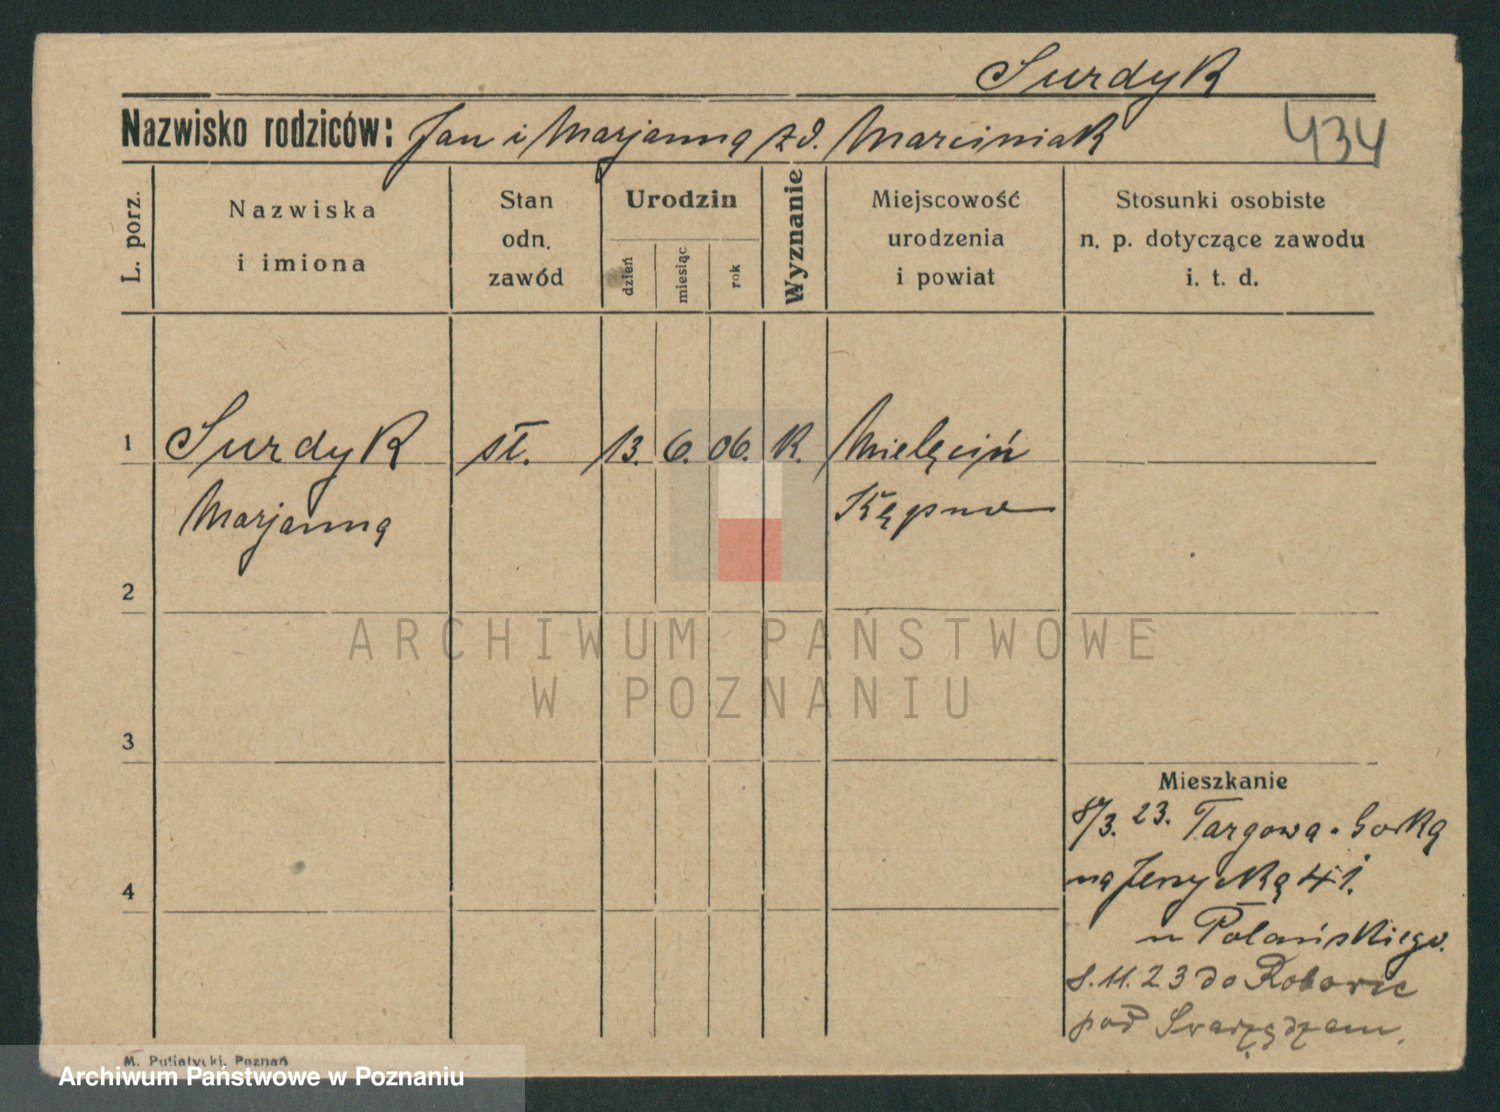 Surdyk
Nazwisko rodziców: Jan i Marjanna zd. Marciniak
434
L. porz.
Nazwiska
i imiona
Stan
odn.
zawód
Urodzin
dzień
miesiąc
rok
Wyznanie
Miejscowość
urodzenia
i powiat
Stosunki osobiste
n. p. dotyczące zawodu
i. t. d.
1 Surdyk sł. 13. 6. 06. K. Mielęcin
Marjanna Kępno
2
ARCHIWUM PAŃSTWOWE
W POZNANIU
3
Mieszkanie
8/3. 23. Targowa-Gorka
4
na Jerzycka 41.
u Polańskiego.
8.11.23 do
pod Swarzędzem.
M. Putiatycki, Poznań
Archiwum Państwowe w Poznaniu